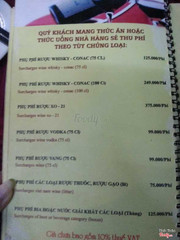 QUÝ KHÁCH MANG THỨC ĂN HOẶC
THỨC UỐNG NHÀ HÀNG SẼ THU PHÍ
THEO TÙY CHỦNG LOẠI:
PHỤ PHÍ RƯỢU WHISKY - CONAC (75 CL) 125.000/PSI
Surcharges wine whisky - conac (75 cl)
PHỤ PHÍ RƯỢU WHISKY - CONAC (100 Cl) 245.000/PSI
Surcharges wine whisky - conac (100 cl)
PHỤ PHÍ RƯỢU XO - 21 275.000/PSI
Surcharges wine xo - 21
PHỤ PHÍ RƯỢU VODKA (75 Cl) 99.000/PSI
Surcharges wine vodka (75 cl)
PHỤ PHÍ RƯỢU VANG (75 Cl) 99.000/PSI
Surcharges wine (75 cl)
PHỤ PHÍ CÁC LOẠI RƯỢU THUỐC, RƯỢU GẠO (lít) 75,000/PSI
Surcharges rice wine (liter)
PHỤ PHÍ BIA HOẶC NƯỚC GIẢI KHÁT CÁC LOẠI (Thùng) 125,000/PSI
Surcharges of beer or beverage category (boxes)
Giá chưa bao gồm 10% thuế VAT